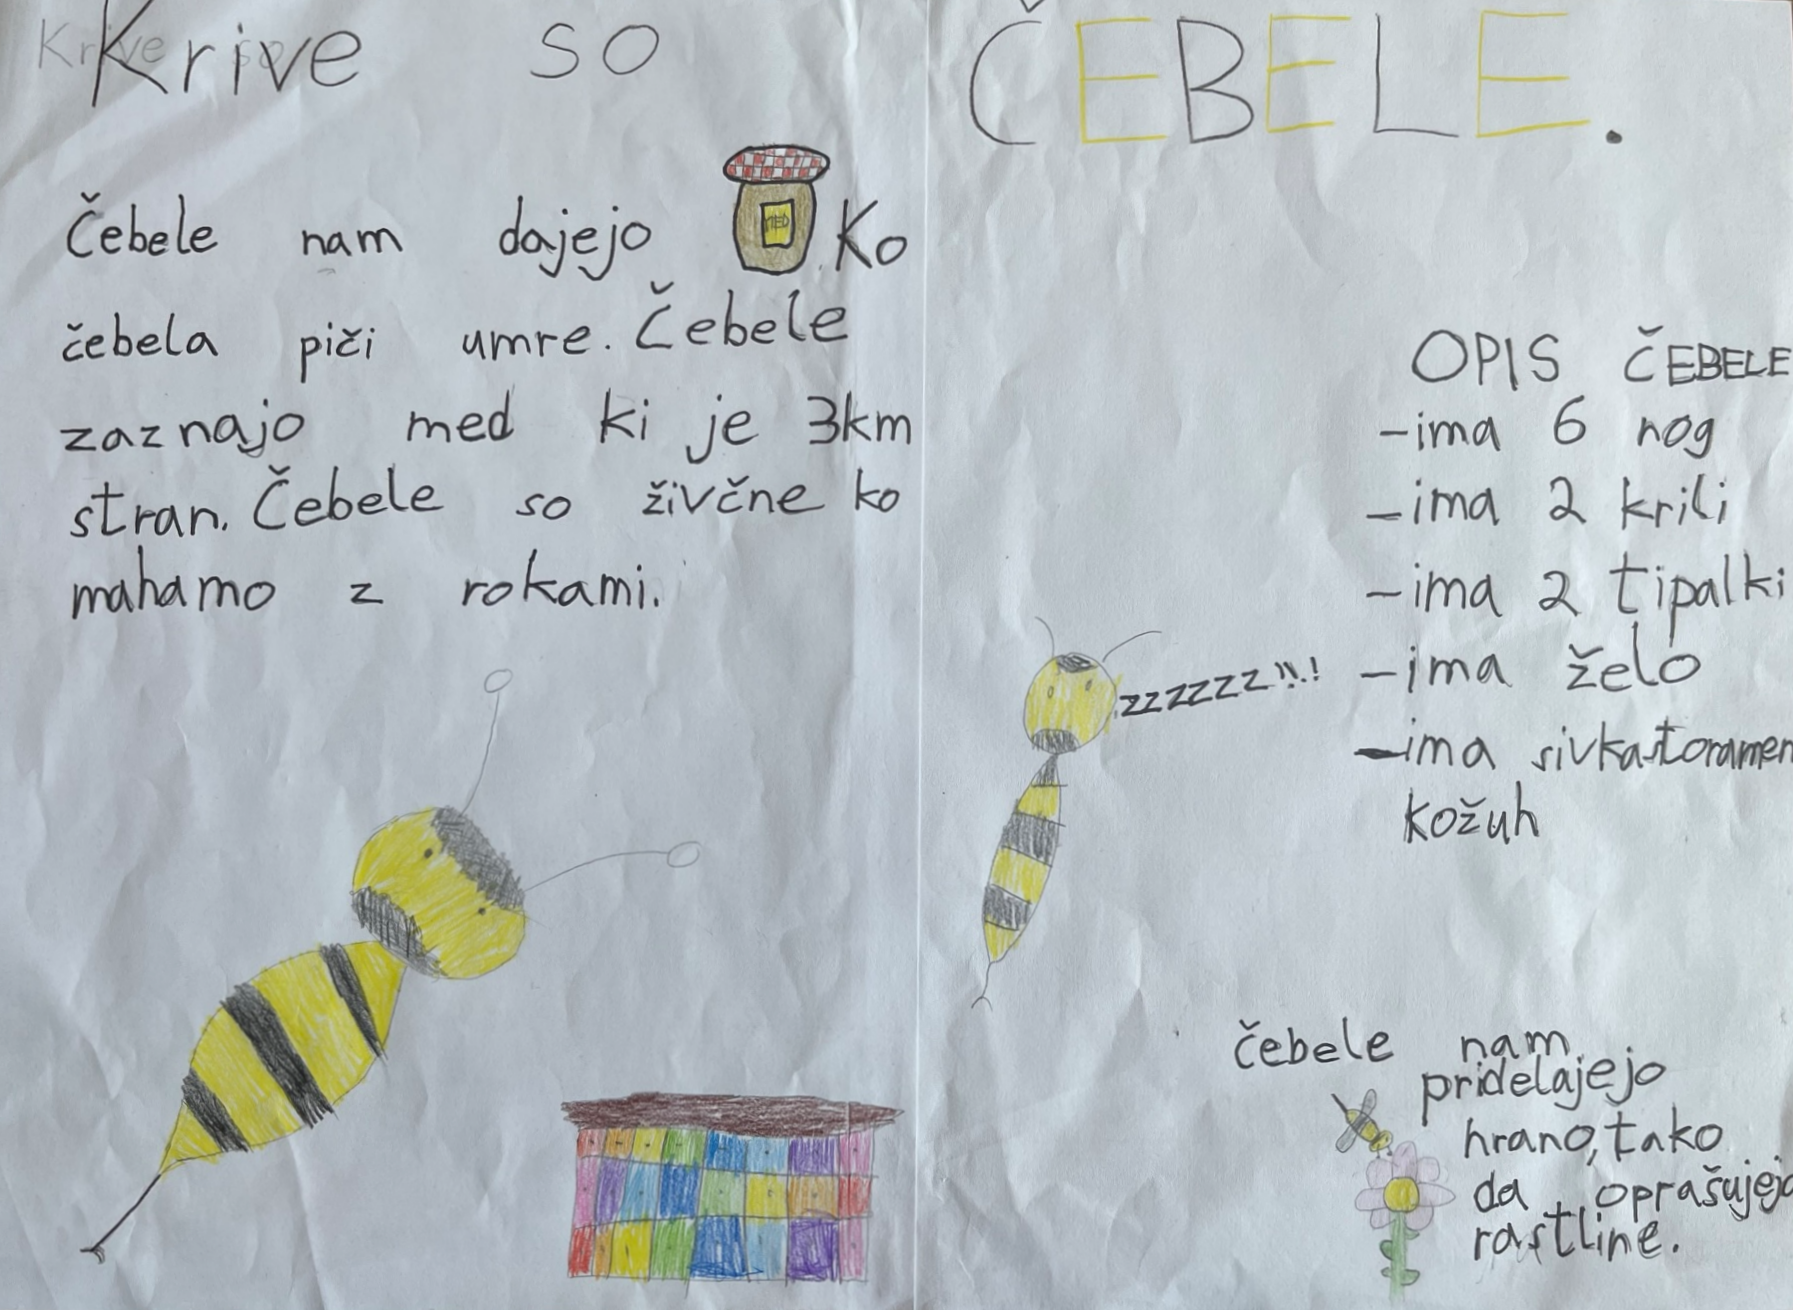 Krive so ČEBELE.
Čebele nam dajejo MED. Ko
čebela piči umre. Čebele
zaznajo med ki je 3km
stran. Čebele so živčne ko
mahamo z rokami.
OPIS ČEBELE
-ima 6 nog
-ima 2 krili
-ima 2 tipalki
-ima želo
-ima sivkastoramen
kožuh
zzzzzz!!.!
čebele nam
pridelajejo
hrano, tako
da oprašujejo
rastline.